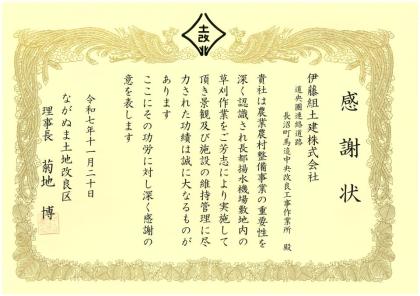 感謝状
伊藤組土建株式会社
道央圏連絡道路
長沼町馬追中央改良工事作業所 殿
貴社は農業農村整備事業の重要性を
深く認識され長都揚水機場敷地内の
草刈作業をご芳志により実施して
頂き景観及び施設の維持管理に尽
力された功績は誠に大なるものが
あります
ここにその功労に対し深く感謝の
意を表します
令和七年十一月二十日
ながぬま土地改良区
理事長 菊地 博